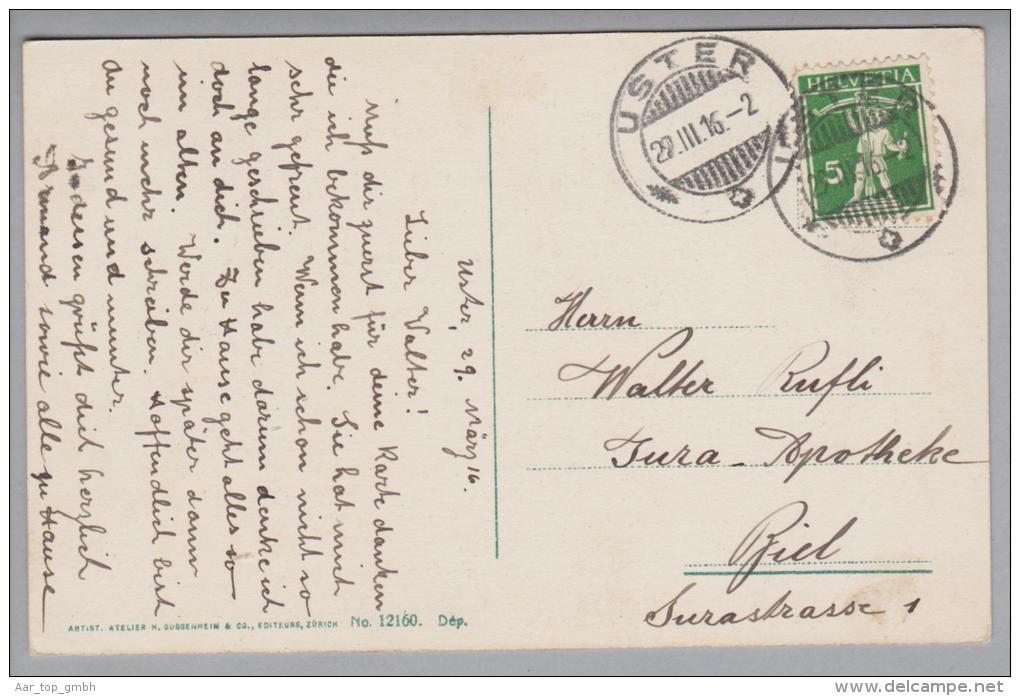 Uster, 29. März 16.
Lieber Walter!
Muß dir zuerst für deine Karte danken
die ich bekommen habe. Sie hat mich
sehr gefreut. Wenn ich schon nicht so
lange geschrieben habe darum denke ich
doch an dich. Zu Hause geht alles so
im alten. Werde dir später dann
noch mehr schreiben. Hoffendlich bist
du gesund und munter.
Indessen grüßt dich herzlich
Armand sowie alle zu Hause
ARTIST. ATELIER H. GUGGENHEIM & CO., EDITEURS, ZÜRICH No. 12160. Dép.
USTER
29.III.16.-2
HELVETIA
5
Herrn
Walter Rufli
Jura-Apotheke
Biel
Jurastrasse 1
Aar_top_gmbh
www.delcampe.net